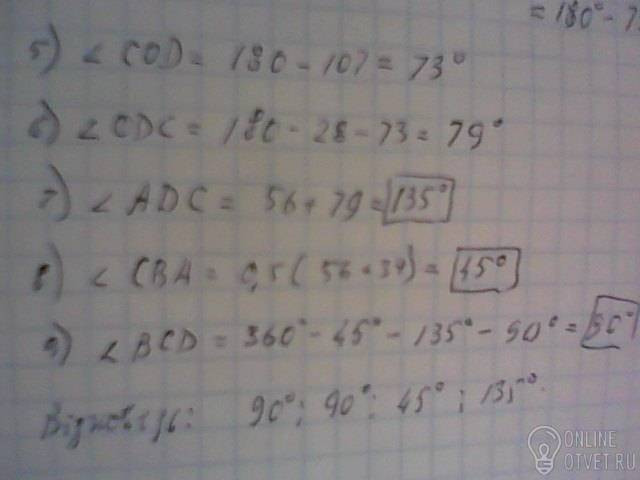 = 180° - 7
5) ∠COD = 180 - 107 = 73°
6) ∠CDC = 180 - 28 - 73 = 79°
7) ∠ADC = 56 + 79 = 135°
8) ∠CBA = 0,5(56 + 34) = 45°
9) ∠BCD = 360° - 45° - 135° - 90° = 90°
Відповідь: 90°; 90°; 45°; 135°.
ONLINE
OTVET.RU